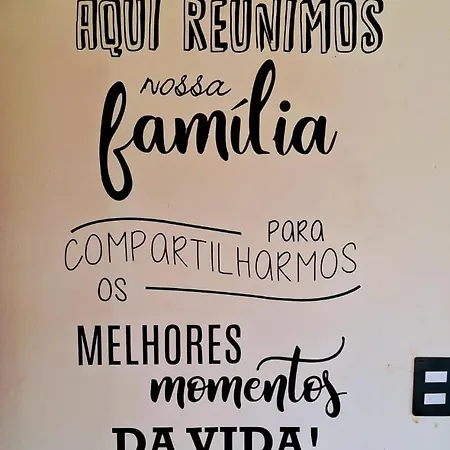 AQUI REUNIMOS
nossa
família
PARA
COMPARTILHARMOS
OS
MELHORES
momentos
DA VIDA!